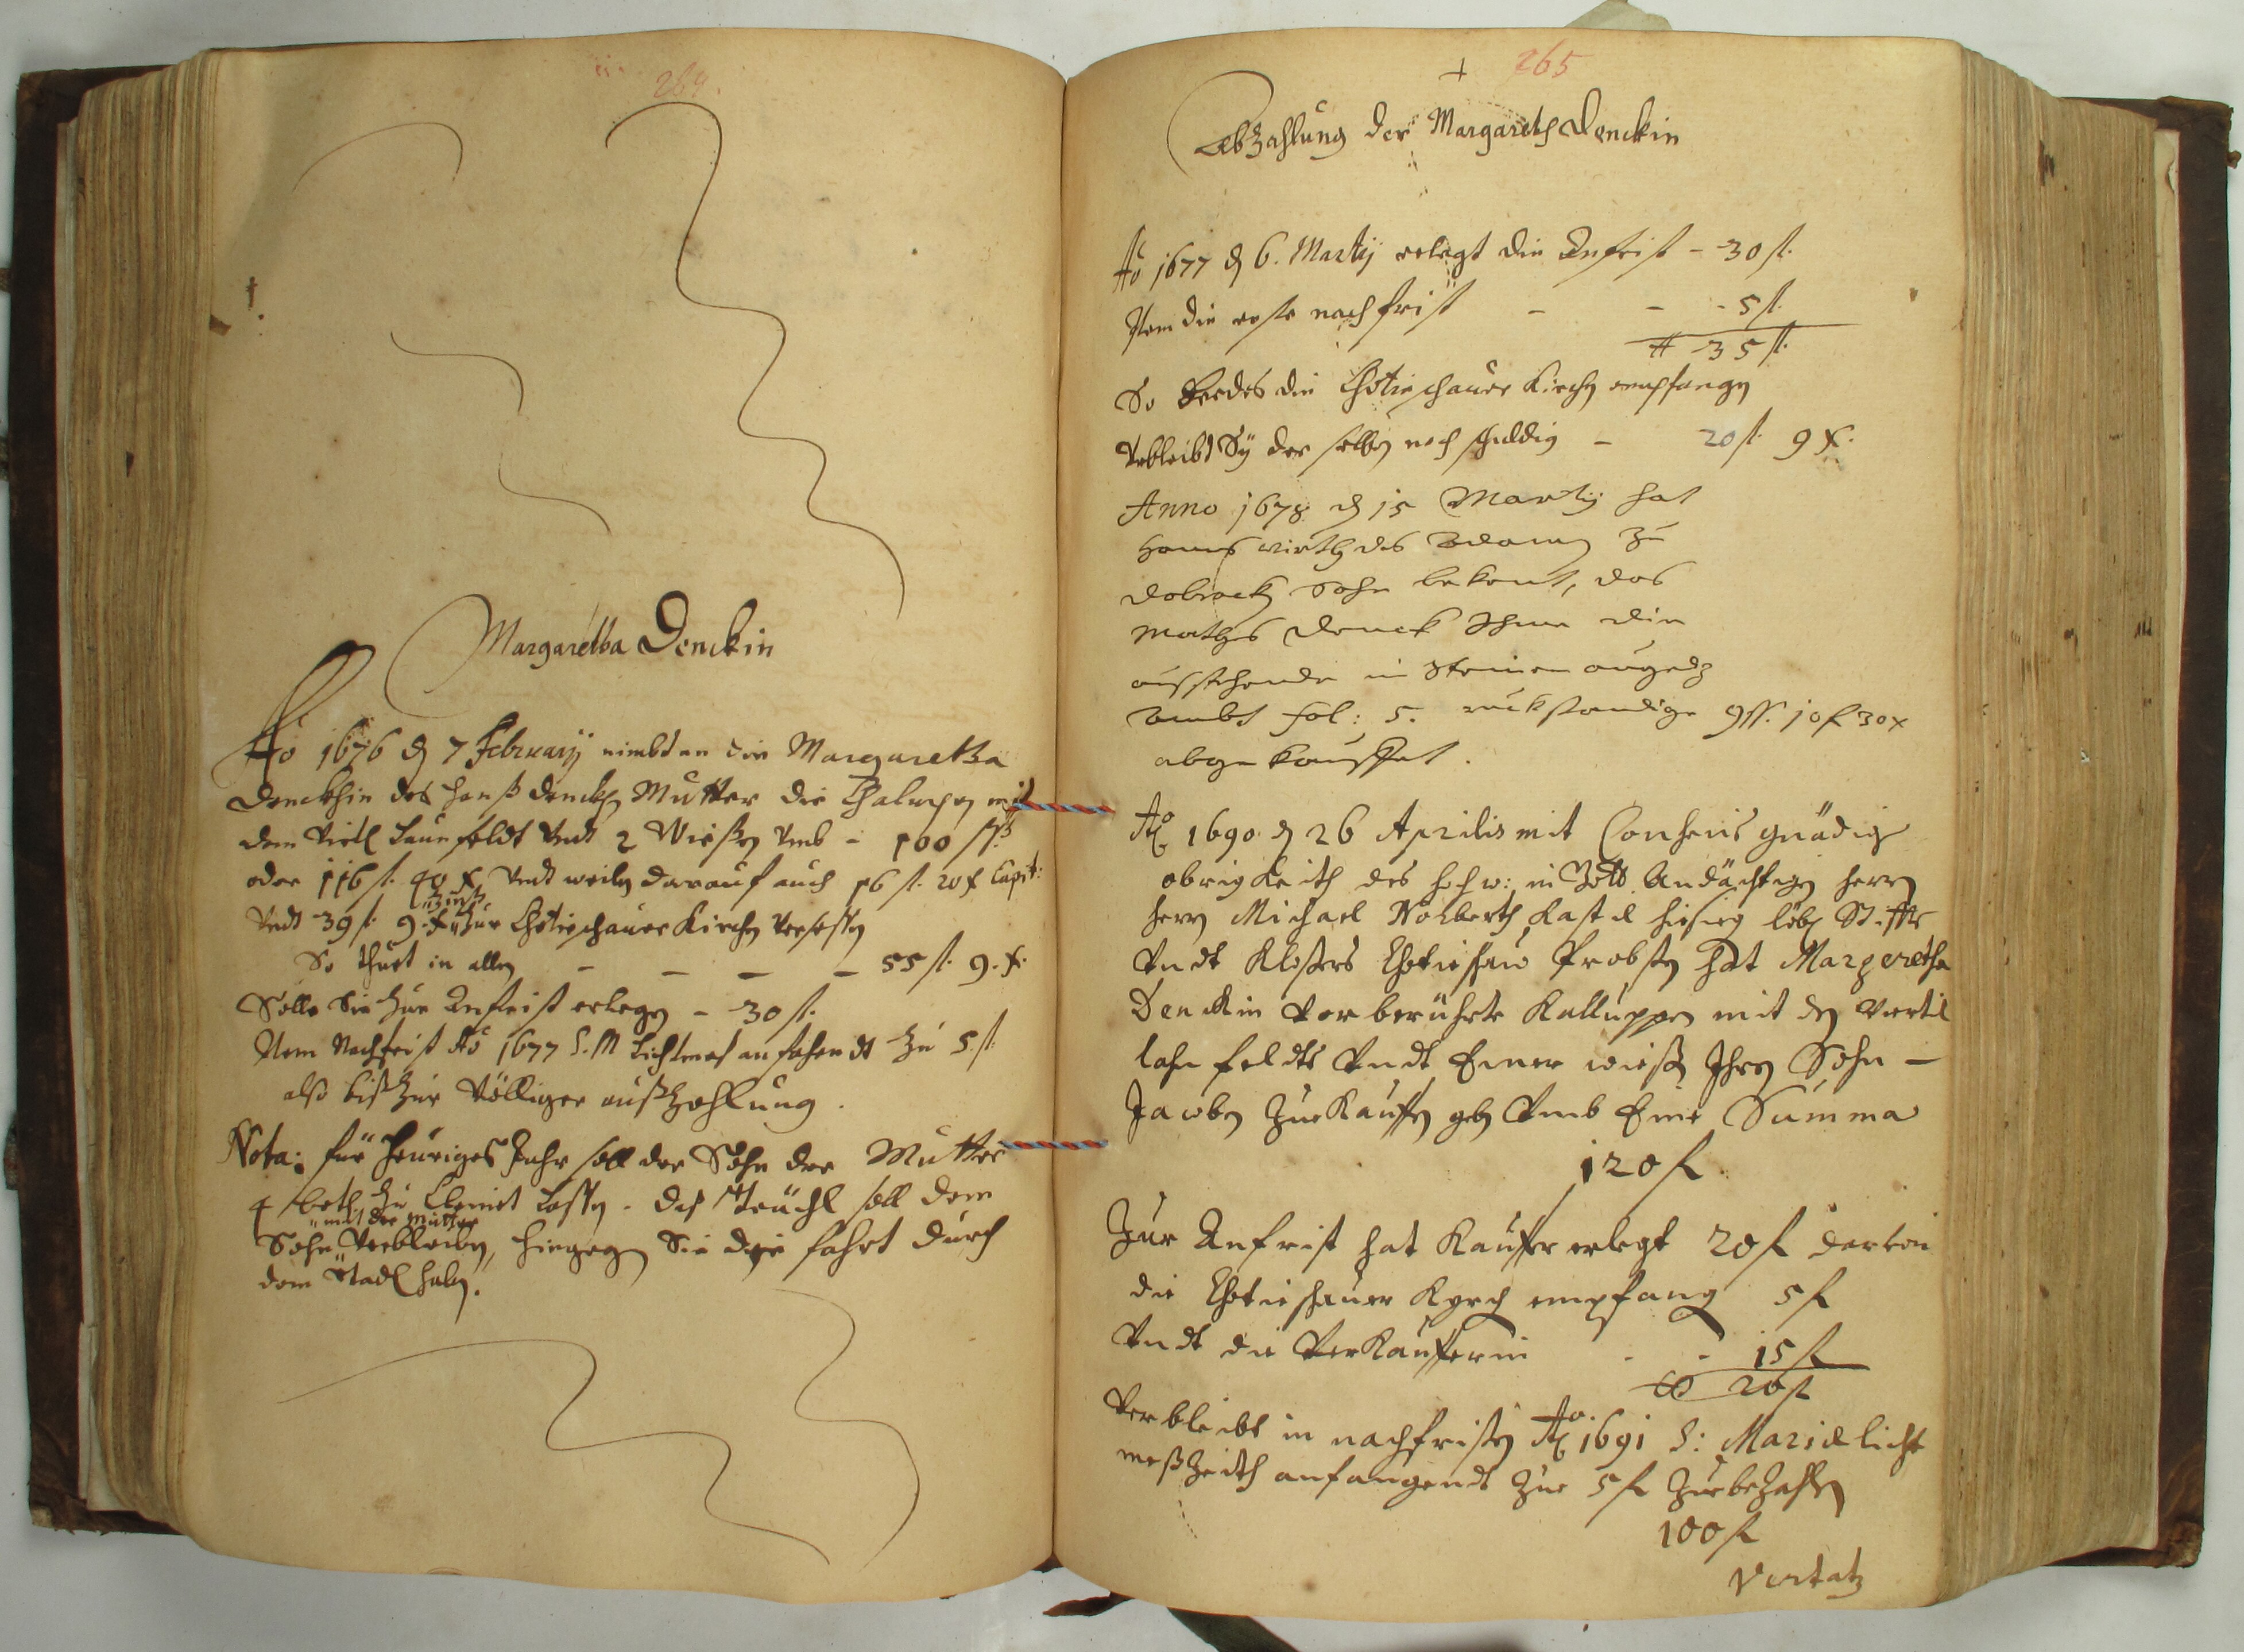 264.
Margaretha Denckin
Aõ 1676 dē 7 February nimbt an die Margaretha
Denckhin des Hanß Dencken Mutter die Chaluppen mit
dem Virtl Launfeldt Undt 2 Wießen Umb - 100 ßß
oder 116 fl. 40 x Undt weilen darauf auch 16 fl. 20 x Capit:
Undt 39 fl. 9 x Zinß Zur Chotieschauer Kirchen Versessen
So thuet in allen - - - - 55 fl. 9. x.
Solle Sie Zur Anfrist erlegen - 30 fl.
Item Nachfrist Aõ 1677 S. M Lichtmes anfahendt Zu 5 fl.
alß biß Zur Völliger außZahlung.
Nota: für heuriges Jahr soll der Sohn der Mutter
4 beth Zu lassen. Das soll dem
mit der Mutter
Sohn Verbleiben, hingegen Sie die fahrt durch
dem Stadl haben.
265
AbZahlung der Margareth Denckin
Aõ 1677 dē 6. Martij erlegt die Anfrist - 30 fl.
Item die erste nachfrist - - - 5 fl.
35 fl.
So beedes die Chotieschauer Kirchen empfangen
Verbleibt Sy der selben noch schuldig - 20 fl. 9 x.
Anno 1678 dē 15 Martij hat
Hanns wirth des Adam Zu
Dobrack Sohn bekent, das
Mathes Denck Ihme die
ausstehende in
fol: 5. rückstandige 9 ß. 10 f 30 x
abgekauffet.
Aõ 1690 dē 26 Aprilis mit Consens gnädiger
obrigkeith des hochw: in Gott Andächtigen herrn
herrn Michael Norberth Kastel hiesieg löbl Stiffts
Undt Klosters Chotieschau Probsten hat Margaretha
Denckin Vor berührte Kalluppen mit den Viertl
lahn feldts Undt Einer wießen Ihren Sohn -
Jacoben Zue Kauffen geben Umb Eine Summa
120 f
Zur Anfrist hat Kauffer erlegt 20 f darvon
die Chotieschauer Kyrch empfang 5 f
Undt die Verkaufferin - - 15 f
20 f
Verbleibt in nachfristen Aõ 1691 S: Mariæ licht
meßZeith anfangends Zue 5 f ZuebeZahlen
100 f
Vertatz